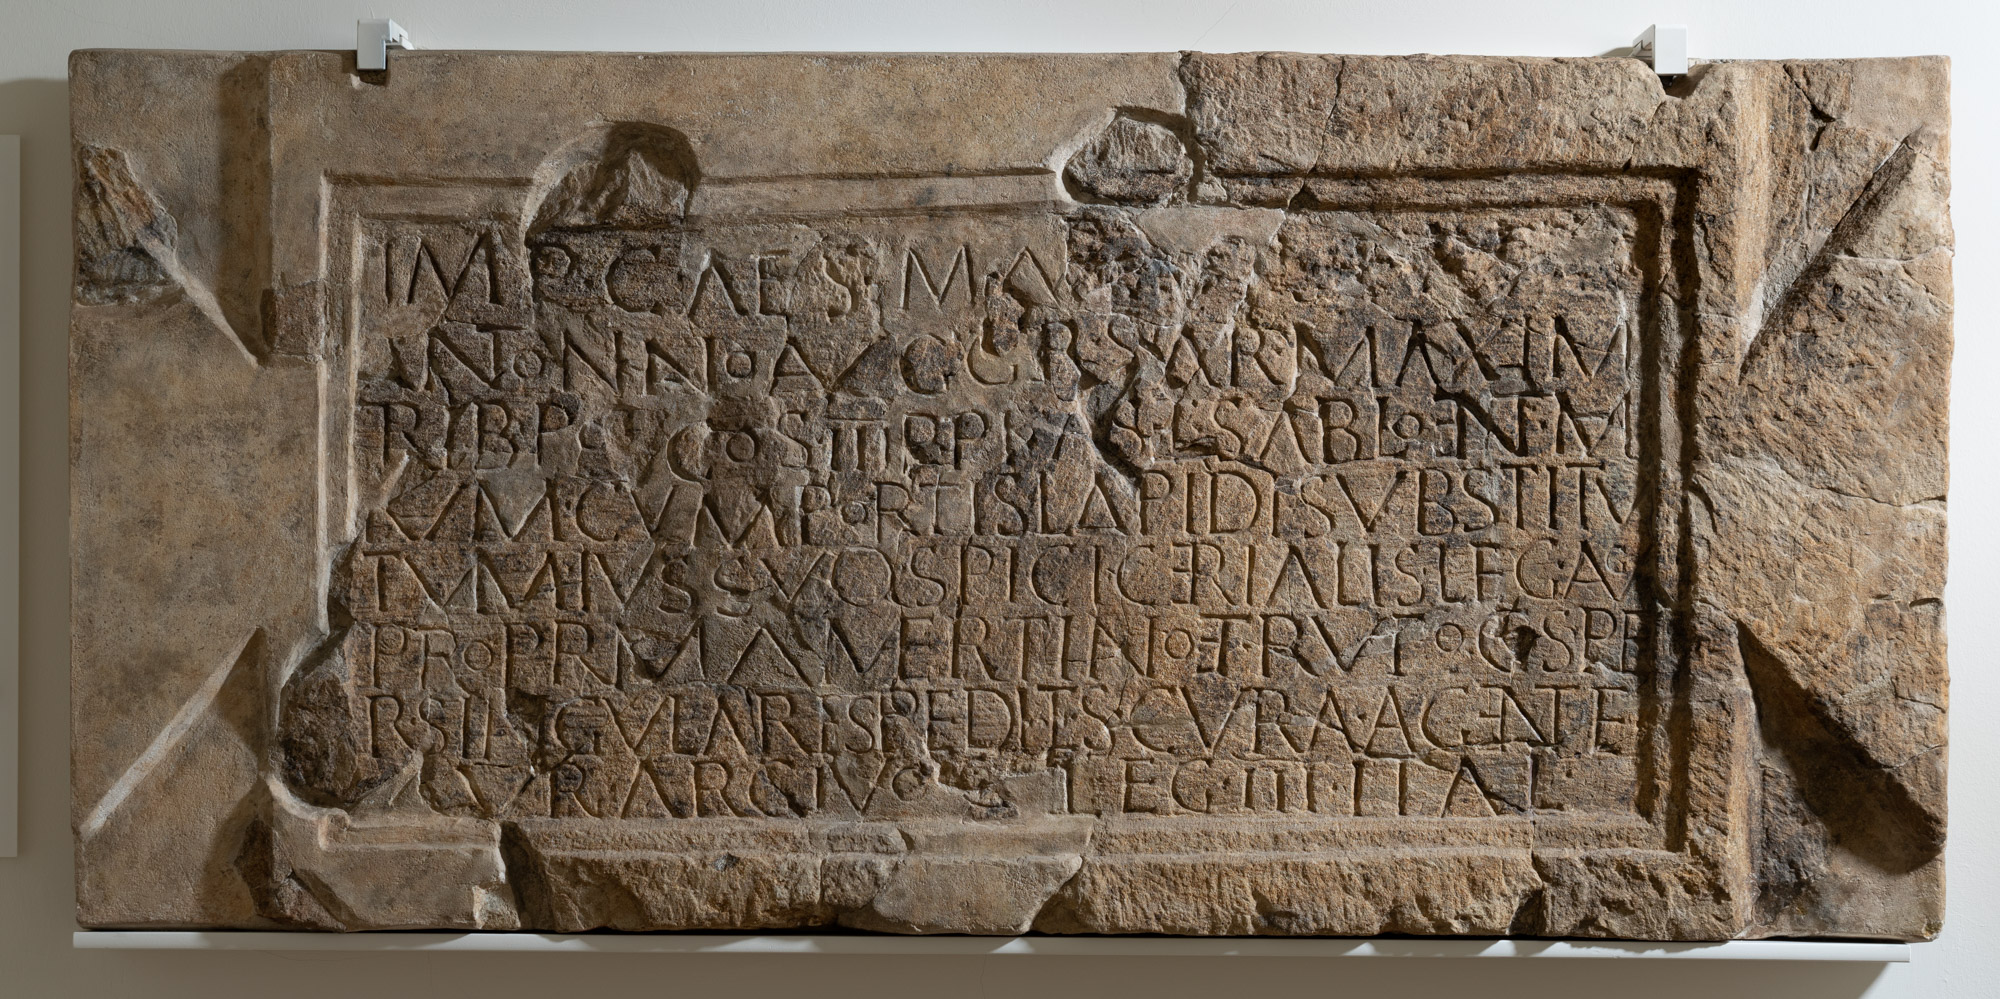 IMP·C·AES·MA
ANTONINO AVG GERSARMAXIM
RIBPOT COSIII PP KAS·SABLONETI M
VM CVM PORTIS LAPIDI SVBSTITV
TVM IVSSV Q SPICI CERIALIS LEG·AG
PRO PR MAMERTINO ET RVFO COS PE
R·SINGVLARES PEDITES CVRA·AGENTE
LEG III ITAL